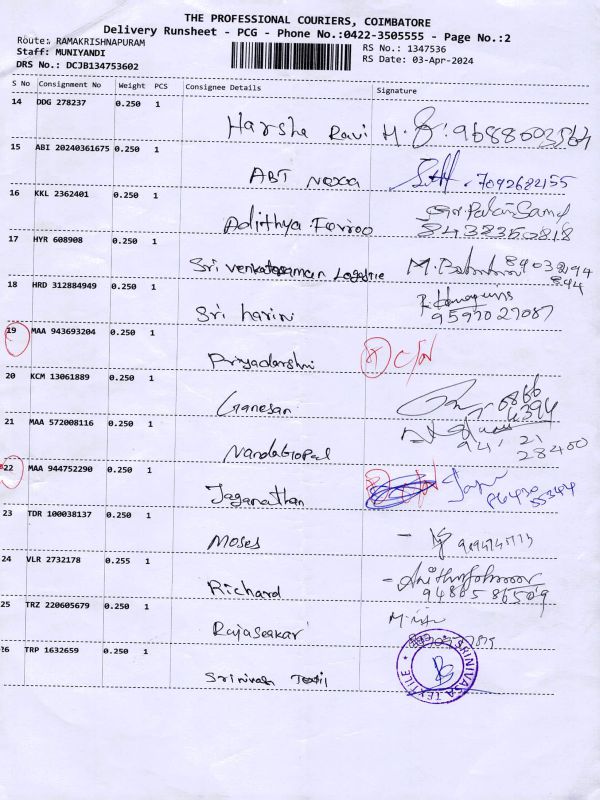 THE PROFESSIONAL COURIERS, COIMBATORE
Delivery Runsheet - PCG - Phone No.:0422-3505555 - Page No.:2
Route: RAMAKRISHNAPURAM
RS No.: 1347536
Staff: MUNIYANDI
RS Date: 03-Apr-2024
DRS No.: DCJB134753602
S No Consignment No Weight PCS Consignee Details Signature
14 DDG 278237 0.250 1
Harsha Ravi M. 9688603564
15 ABI 20240361675 0.250 1
ABT Nexa 7092682155
16 KKL 2362401 0.250 1
Adithya Ferroo 8438350818
17 HYR 608908 0.250 1
Sri Venkataraman Logistic M.
18 HRD 312884949 0.250 1
Sri harini 9597027087
19 MAA 943693204 0.250 1
Priyadarshni
20 KCM 13061889 0.250 1
Ganesan
21 MAA 572008116 0.250 1
NandaGopal 94 21 28400
22 MAA 944752290 0.250 1
Jaganathan
23 TDR 100038137 0.250 1
Moses
24 VLR 2732178 0.255 1
Richard 9486586509
25 TRZ 220605679 0.250 1
Rajasekar
26 TRP 1632659 0.250 1
Srinivasa Textil
SRINIVASA TEXTILE